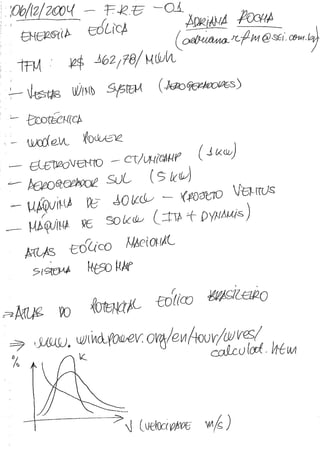 06/12/2004 - FRE - 01
ADRIANA ROCHA
ENERGIA EÓLICA
TFM: R$ 162,78/MWh
- VESTAS WIND SYSTEM (AEROGERADORES)
- ECOTÉCNICA
- WOODEN POWER
- ELETROVENTO - CT/UNICAMP (1KW)
- AEROGERADOR SUL (5KW)
- MÁQUINA DE 10KW - PROJETO VENTUS
- MÁQUINA DE 50KW (ITA + DYNAMIS)
ATLAS EÓLICO NACIONAL
SISTEMA MESOMAP
⇒ ATLAS DO POTENCIAL EÓLICO BRASILEIRO
⇒ www.windpower.org/en/tour/wres/
calculat.htm
%
K
V (VELOCIDADE m/s)